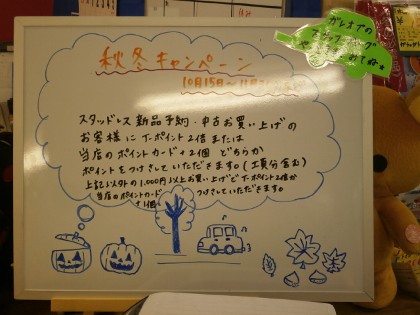 秋冬キャンペーン
10月15日～11月
スタッドレス新品予約・中古お買い上げの
お客様にT-ポイント2倍または
当店のポイントカード+2個どちらか
ポイントをつけさせていただきます。(工賃分含む)
上記以外の1,000円以上お買い上げでT-ポイント2倍か
当店のポイントカード つけさせていただきます。
+1個